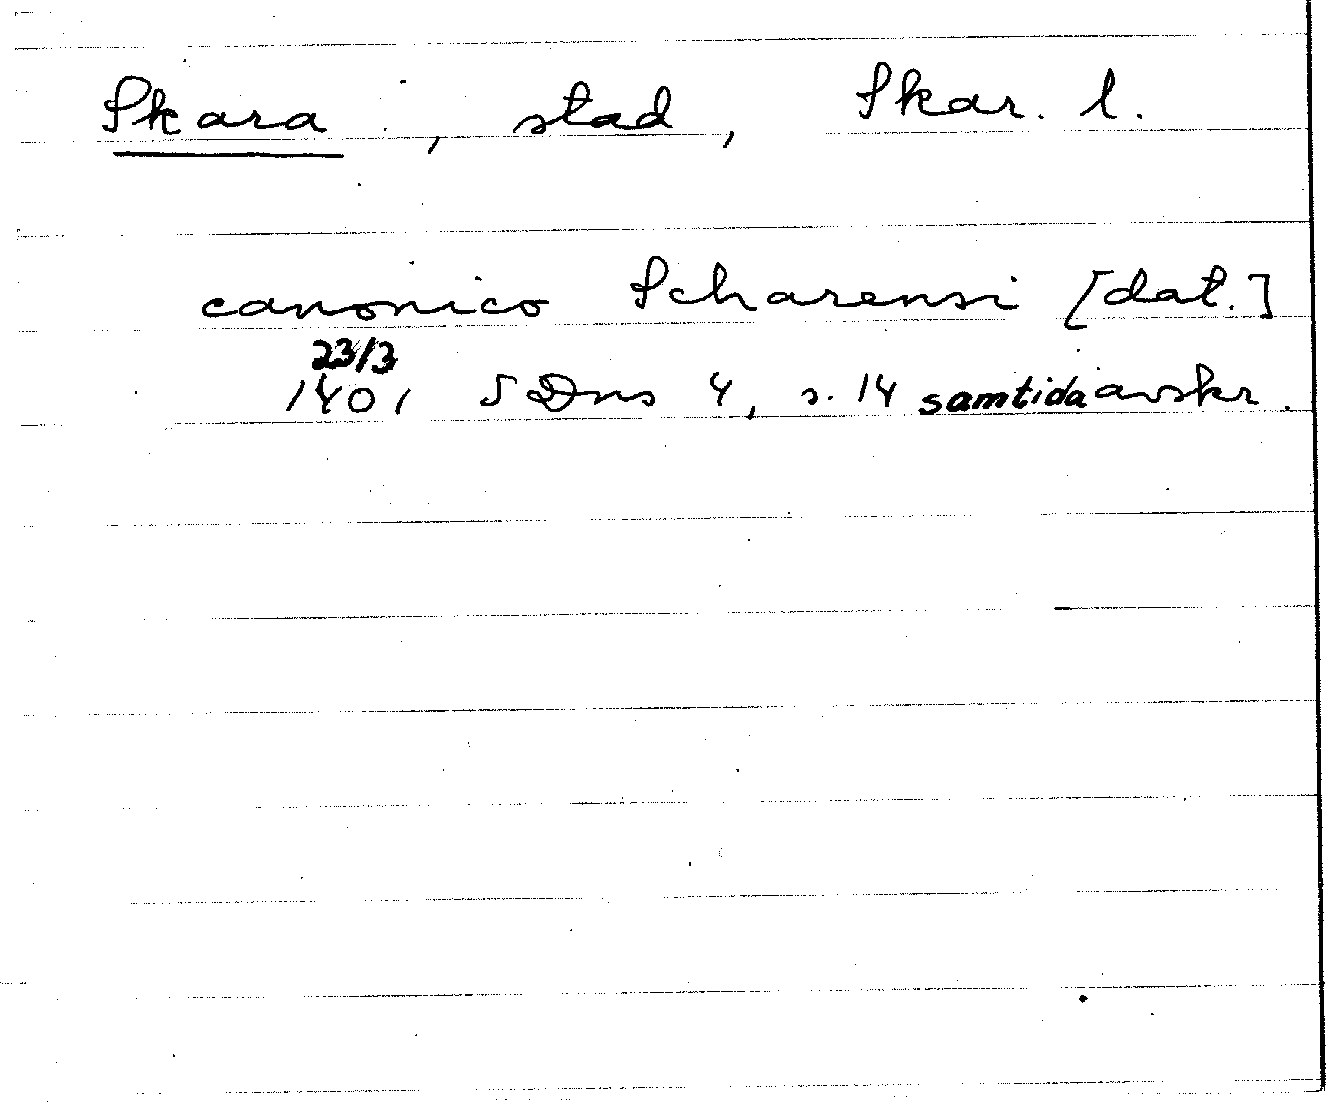 Skara, stad, Skar. l.
canonico Scharensi [dat.]
23/3
1401 SDns 4, s. 14 samtida avskr.